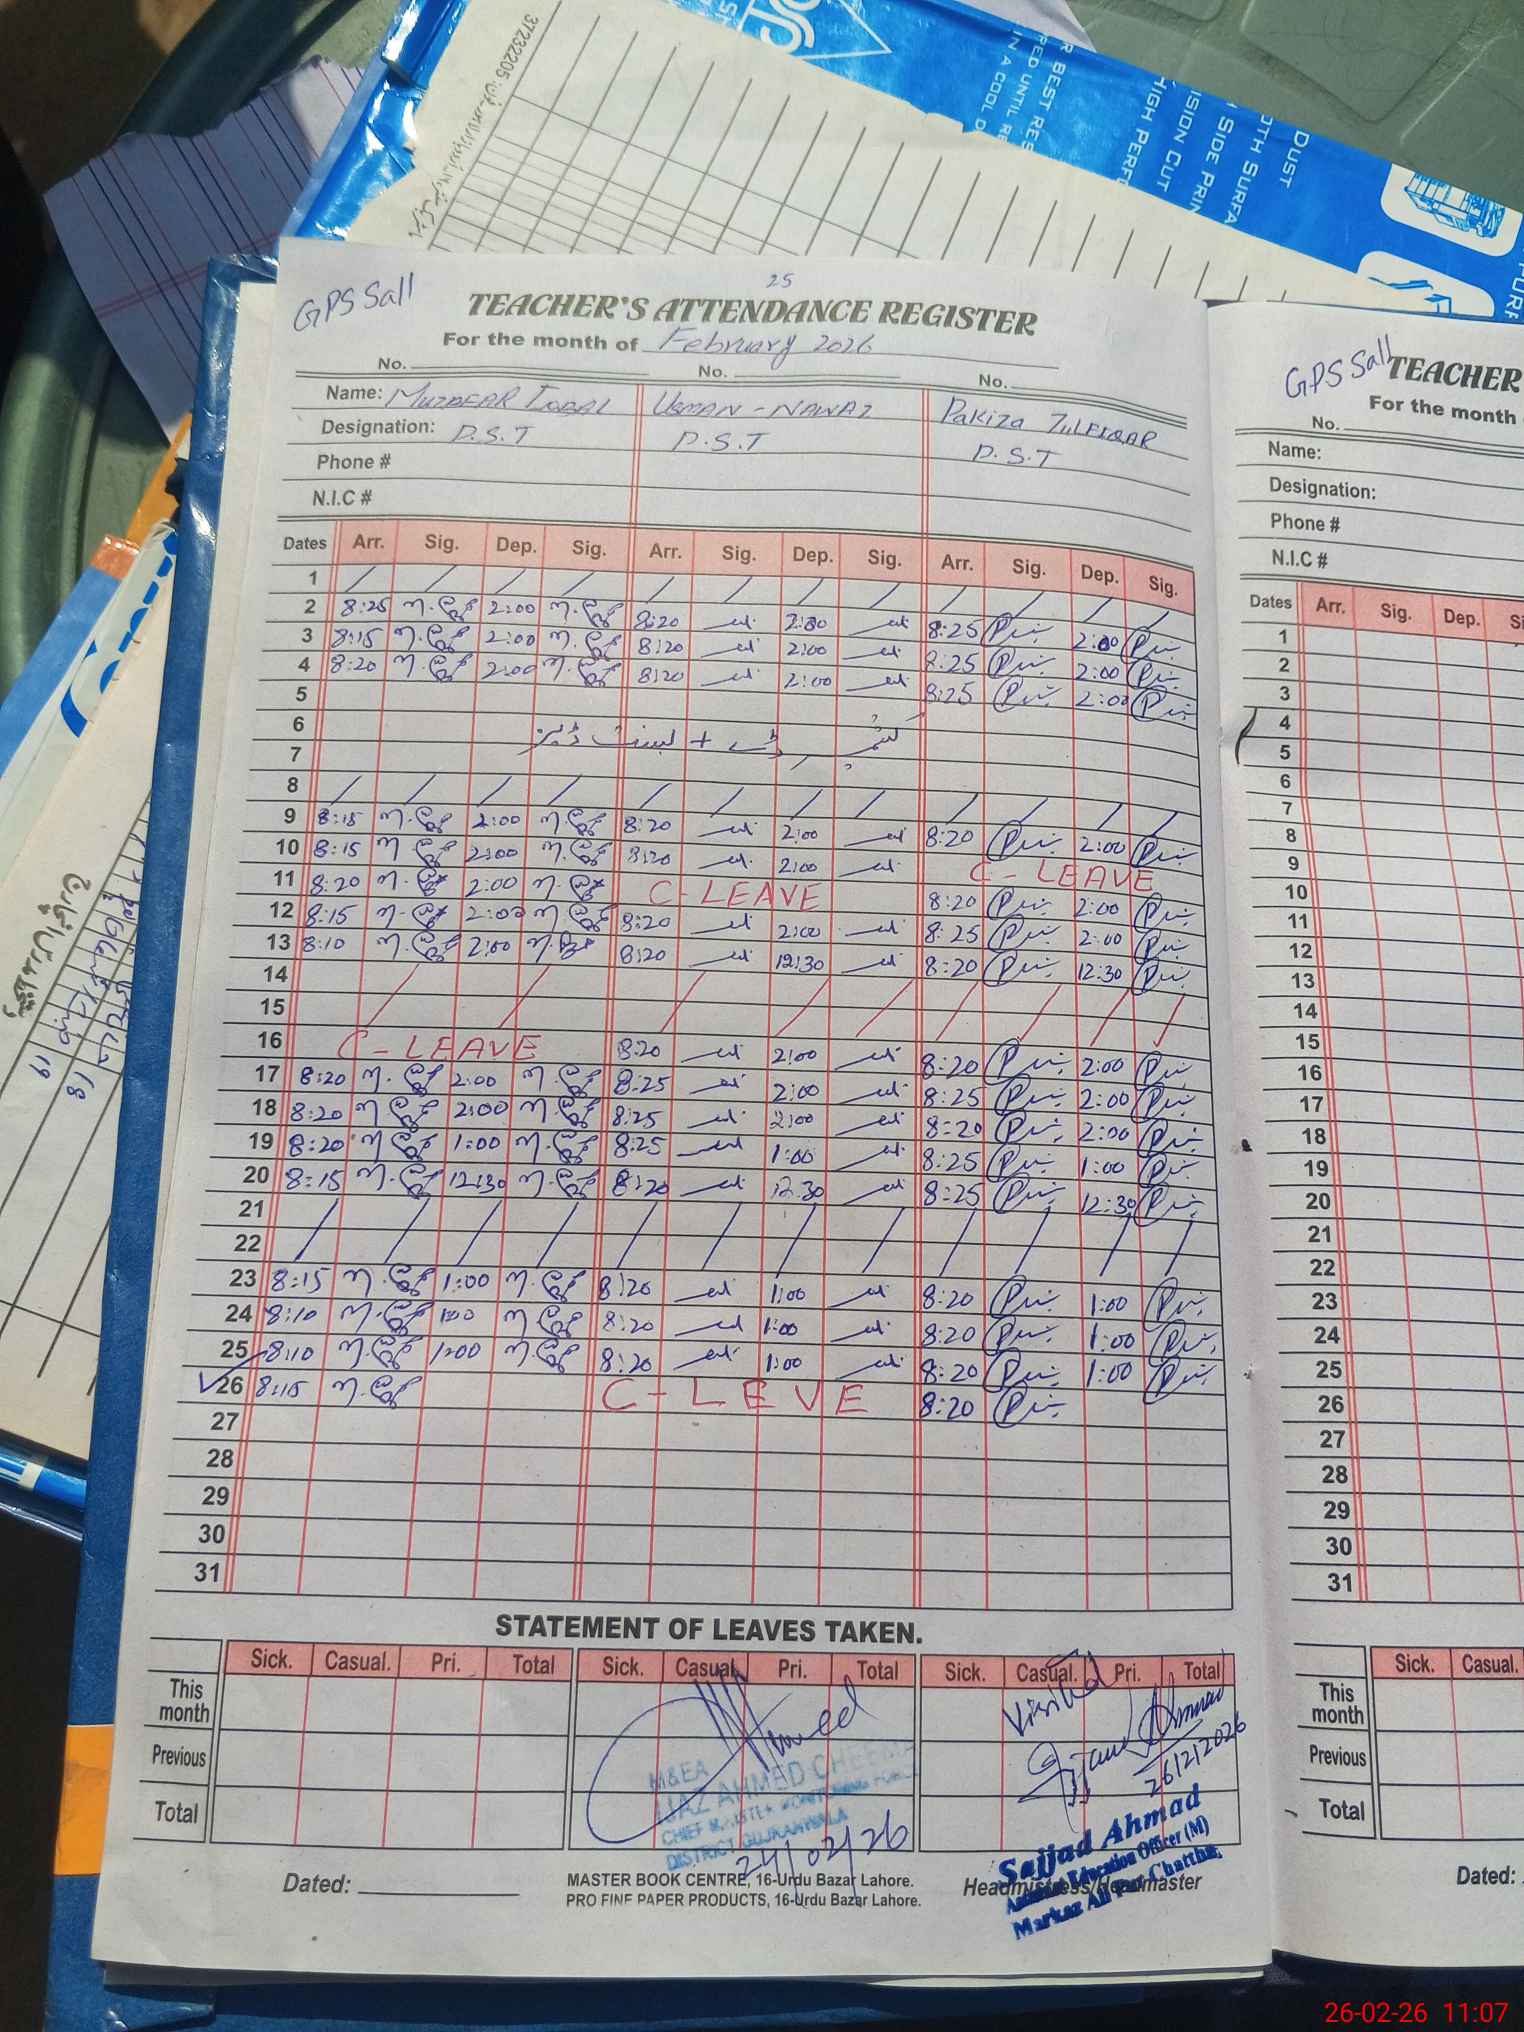 37232205
DUST
OTH SURFA
SIDE PRIN
ISION CUT
HIGH PERF
R BEST RES
PED UNTIL RE
IN A COOL D
25
GPS Sall
TEACHER'S ATTENDANCE REGISTER
For the month of February 2026
No. No. No.
Name: MUZAFAR IQBAL USMAN - NAWAZ Pakiza ZULFIQAR
Designation: P.S.T P.S.T P.S.T
Phone #
N.I.C #
Dates Arr. Sig. Dep. Sig. Arr. Sig. Dep. Sig. Arr. Sig. Dep. Sig.
1
2 8:25 2:00 8:20 2:00 8:25 2:00
3 8:15 2:00 8:20 2:00 8:25 2:00
4 8:20 2:00 8:20 2:00 8:25 2:00
5
6 کشمیر ڈے + بسنت ڈیز
7
8
9 8:15 2:00 8:20 2:00 8:20 2:00
10 8:15 2:00 8:20 2:00 C - LEAVE
11 8:20 2:00 C - LEAVE 8:20 2:00
12 8:15 2:00 8:20 2:00 8:25 2:00
13 8:10 2:00 8:20 12:30 8:20 12:30
14
15
16 C - LEAVE 8:20 2:00 8:20 2:00
17 8:20 2:00 8:25 2:00 8:25 2:00
18 8:20 2:00 8:25 2:00 8:20 2:00
19 8:20 1:00 8:25 1:00 8:25 1:00
20 8:15 12:30 8:20 12:30 8:25 12:30
21
22
23 8:15 1:00 8:20 1:00 8:20 1:00
24 8:10 1:00 8:20 1:00 8:20 1:00
25 8:10 1:00 8:20 1:00 8:20 1:00
26 8:15 C - LEVE 8:20
27
28
29
30
31
STATEMENT OF LEAVES TAKEN.
Sick. Casual. Pri. Total Sick. Casual. Pri. Total Sick. Casual. Pri. Total
This month
Previous
Total
Ahmed
M&EA
IJAZ AHMED CHEEMA
CHIEF MINISTER MONITORING FORCE
DISTRICT GUJRANWALA
24/02/26
Visited
Sajjad Ahmad
26/2/2026
Sajjad Ahmad
Assistant Education Officer (M)
Markaz Ali Pur Chattha
Dated:
MASTER BOOK CENTRE, 16-Urdu Bazar Lahore.
PRO FINE PAPER PRODUCTS, 16-Urdu Bazar Lahore.
Headmistress/Headmaster
GPS Sall
TEACHER
For the month
No.
Name:
Designation:
Phone #
N.I.C #
Dates Arr. Sig. Dep. Si
1
2
3
4
5
6
7
8
9
10
11
12
13
14
15
16
17
18
19
20
21
22
23
24
25
26
27
28
29
30
31
Sick. Casual.
This month
Previous
Total
Dated:
26-02-26 11:07